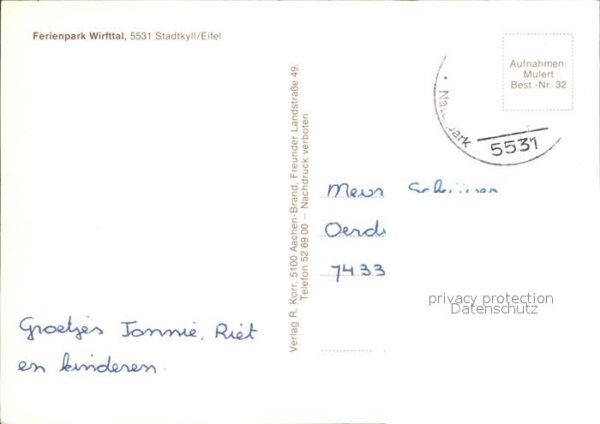 Ferienpark Wirfttal, 5531 Stadtkyll/Eifel
Aufnahmen:
Mulert
Best.-Nr. 32
5531
Verlag R. Korr, 5100 Aachen-Brand, Freunder Landstraße 49,
Telefon 52 69 00 – Nachdruck verboten
7433
privacy protection
Datenschutz
Groetjes Tonnie, Riet
en kinderen